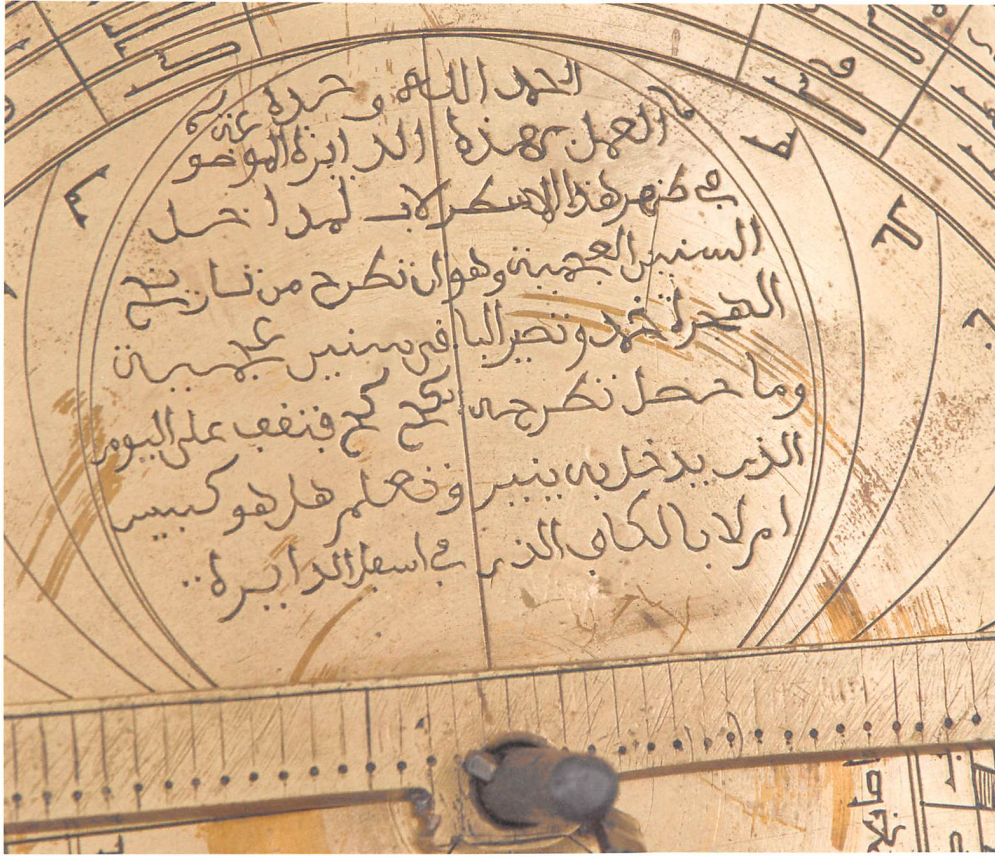 الحمد لله وحده
العمل بهذه الدايرة الموضو
في ظهر هذا الاسطرلاب لمداخل
السنين العجمية وهو ان تطرح من تاريخ
الهجرة وتصير الباقي سنين عجمية
وما حصل تطرحه كح كح فتقف على اليوم
الذي يدخل به ينير وتعلم هل هو كبيس
ام لا بالكاف الذي في اسفل الدايرة